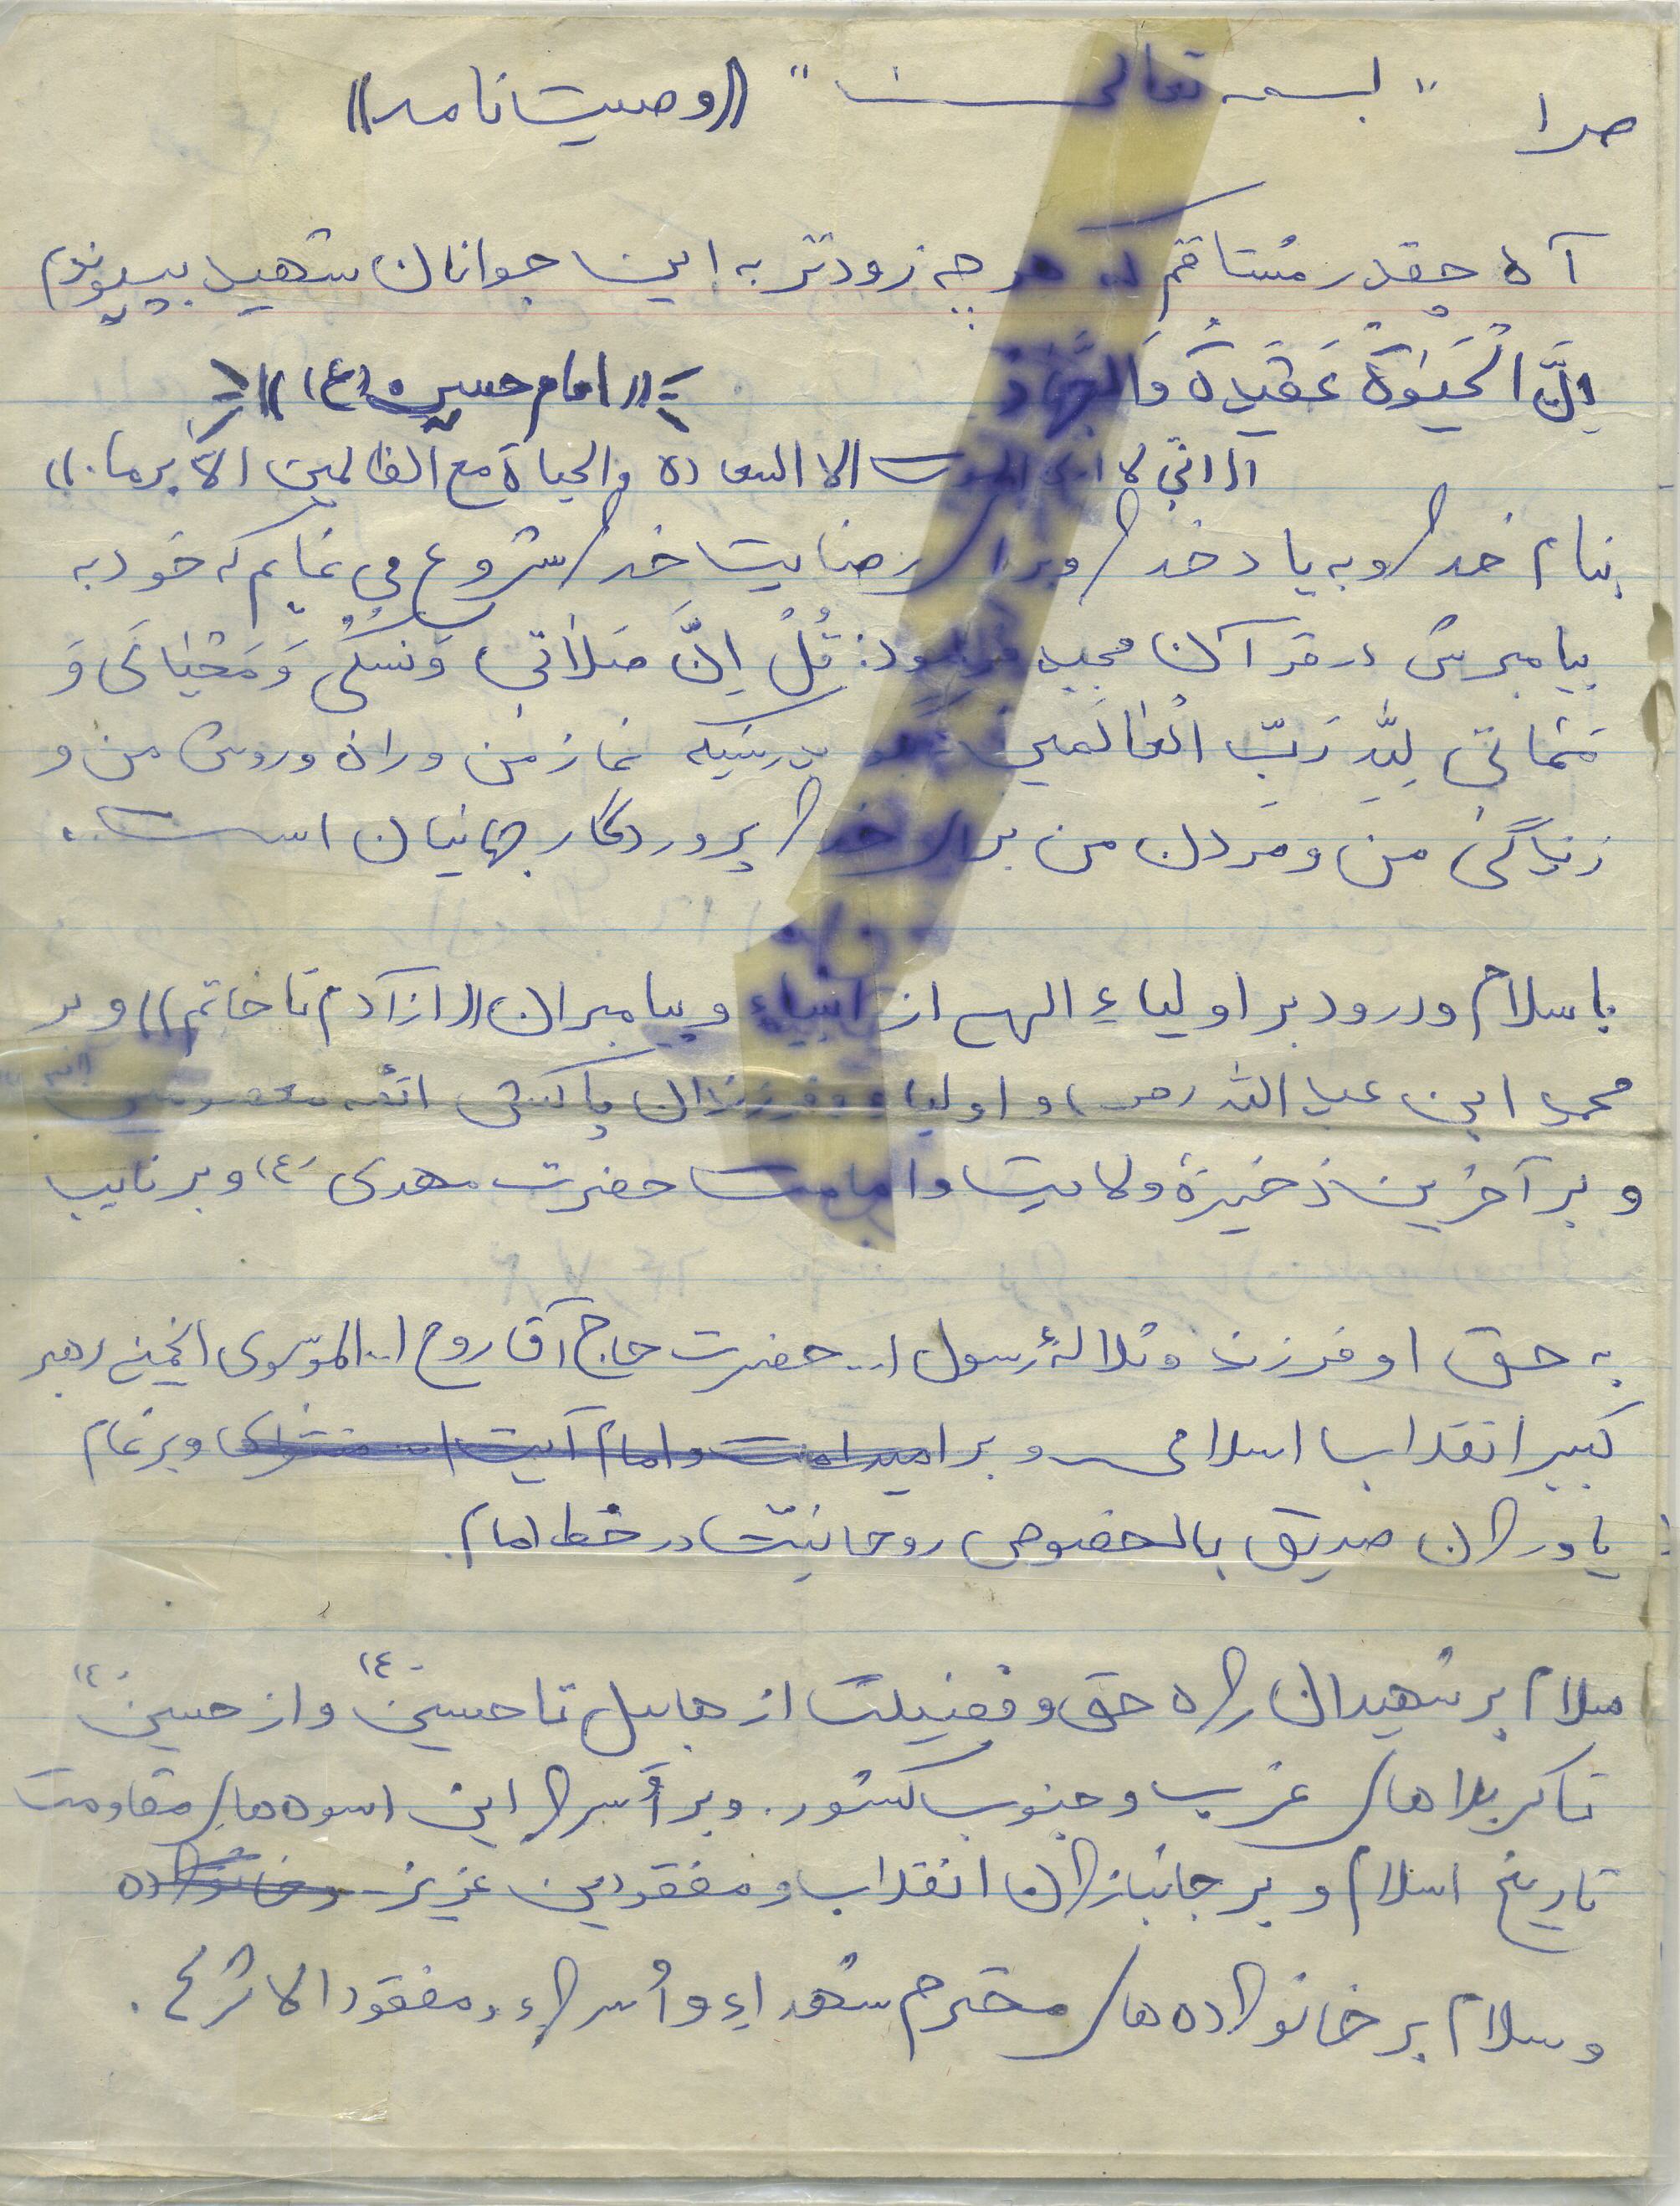 ص ۱ " بسمه تعالی " ((وصیت نامه))
آه چقدر مشتاقم که هر چه زودتر به این جوانان شهید بپیوندم
اِنَّ الْحَیوٰةَ عَقیدَةٌ وَالْجِهٰاد ((امام حسین (ع)))
((انی لا اری الموت الا السعادة والحیاة مع الظالمین الّا برما.))
بنام خدا و به یاد خدا و برای رضایت خدا شروع می نمایم که خود به
پیامبرش در قرآن مجید فرمود: قُلْ اِنَّ صَلٰاتی وَنُسُکی وَ مَحْیٰایَ وَ
مَمٰاتی لِلّٰهِ رَبِّ الْعٰالَمین بگو بدرستیکه نماز من و راه و روش من و
زندگی من و مردن من برای خدا پروردگار جهانیان است.
با سلام و درود بر اولیاءِ الهی از انبیاء و پیامبران ((از آدم تا خاتم)) و بر
محمد ابن عبدالله (ص) و اولیاء و فرزندان پاکش ائمه معصومین
و بر آخرین ذخیرهٔ ولایت و امامت حضرت مهدی (ع) و بر نایب
به حق او فرزند و سلالهٔ رسول ا... حضرت حاج آقا روح ا... الموسوی الخمینی رهبر
کبیر انقلاب اسلامی و بر امید امت و امام آیت ا... منتظری و بر تمام
یاوران صدیق بالخصوص روحانیت در خط امام.
سلام بر شهیدان راه حق و فضیلت از هابیل تا حسین (ع) و از حسین (ع)
تا کربلاهای غرب و جنوب کشور. و بر اُسرا این اسوه های مقاومت
تاریخ اسلام و بر جانبازان انقلاب و مفقودین عزیز و خانواده
و سلام بر خانواده های محترم شهداءِ و اُسراءِ و مفقودالاثرها.